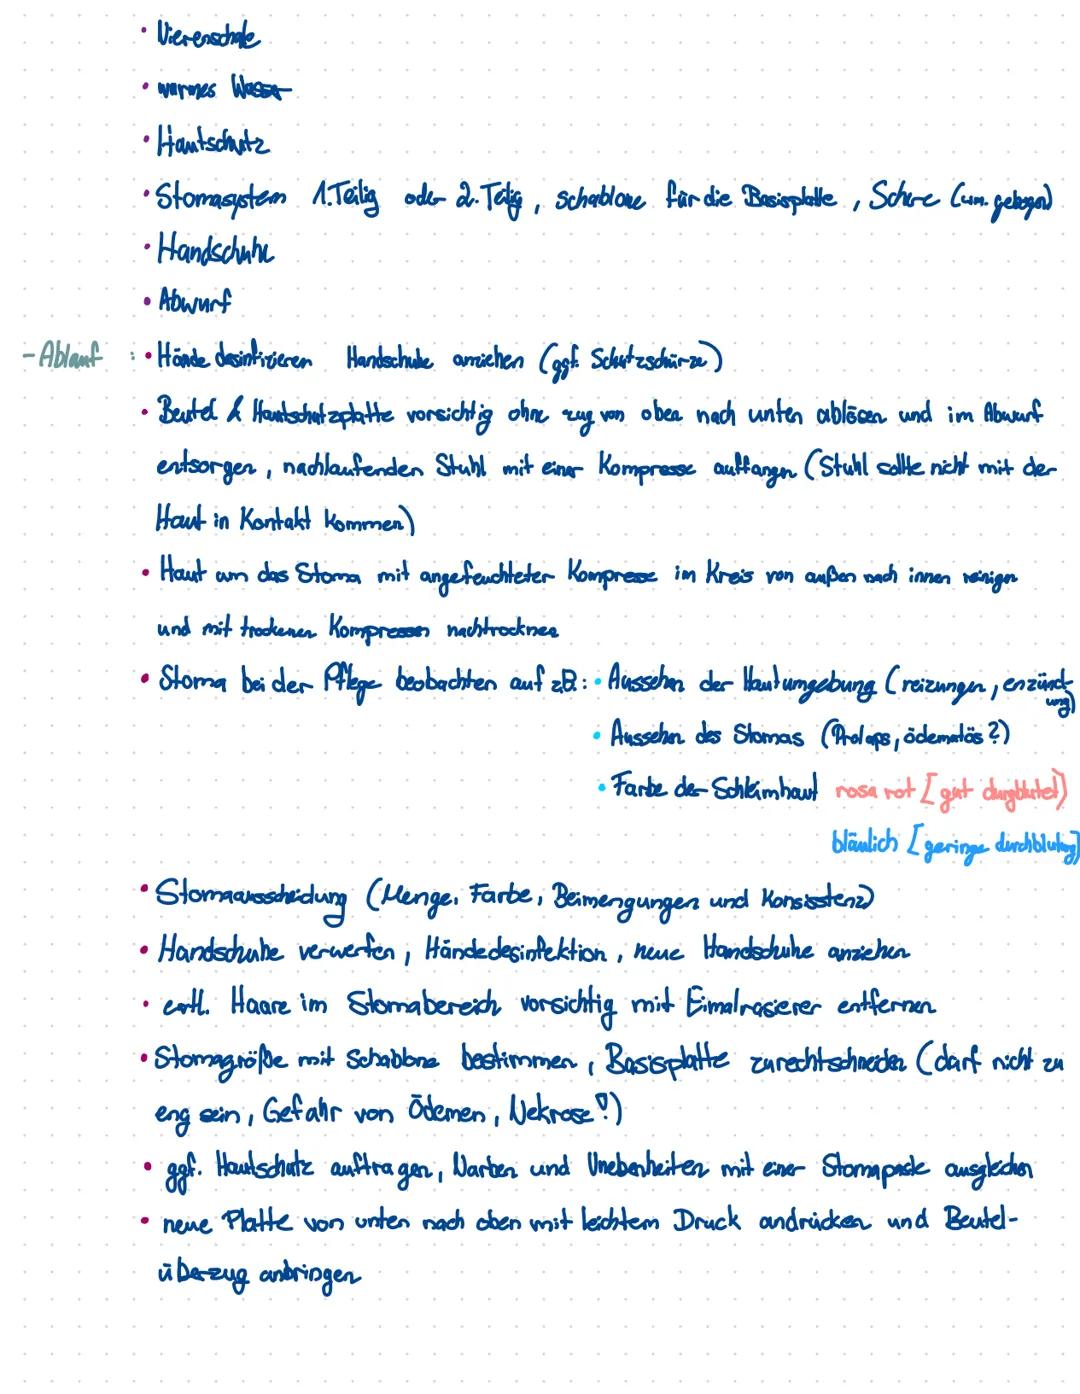 • Nierenschale
• warmes Wasser
• Hautschutz
• Stomasystem 1.Teilig oder 2.Teilig, Schablone für die Basisplatte, Schere (um. gebogen)
• Handschuhe
• Abwurf
- Ablauf : • Hände desinfizieren Handschuhe anziehen (ggf. Schutzschürze)
• Beutel & Hautschutzplatte vorsichtig ohne zug von oben nach unten ablösen und im Abwurf
entsorgen, nachlaufenden Stuhl mit einer Kompresse auffangen (Stuhl sollte nicht mit der
Haut in Kontakt kommen)
• Haut um das Stoma mit angefeuchteter Kompresse im Kreis von außen nach innen reinigen
und mit trockenen Kompressen nachtrocknen
• Stoma bei der Pflege beobachten auf z.B.: • Aussehen der Hautumgebung (reizungen, enzünd-
ung)
• Aussehen des Stomas (Prolaps, ödematös?)
• Farbe der Schleimhaut rosa rot [gut durgblutet)
bläulich [geringe durchblutung]
• Stomaausscheidung (Menge, Farbe, Beimengungen und Konsisstenz)
• Handschuhe verwerfen, Händedesinfektion, neue Handschuhe anziehen
• evtl. Haare im Stomabereich vorsichtig mit Eimalrasierer entfernen
• Stomagröße mit Schablone bestimmen, Basisplatte zurechtschneiden (darf nicht zu
eng sein, Gefahr von Ödemen, Nekrose!)
• ggf. Hautschutz auftragen, Narben und Unebenheiten mit einer Stomapaste ausgleichen
• neue Platte von unten nach oben mit leichtem Druck andrücken und Beutel-
überzug anbringen